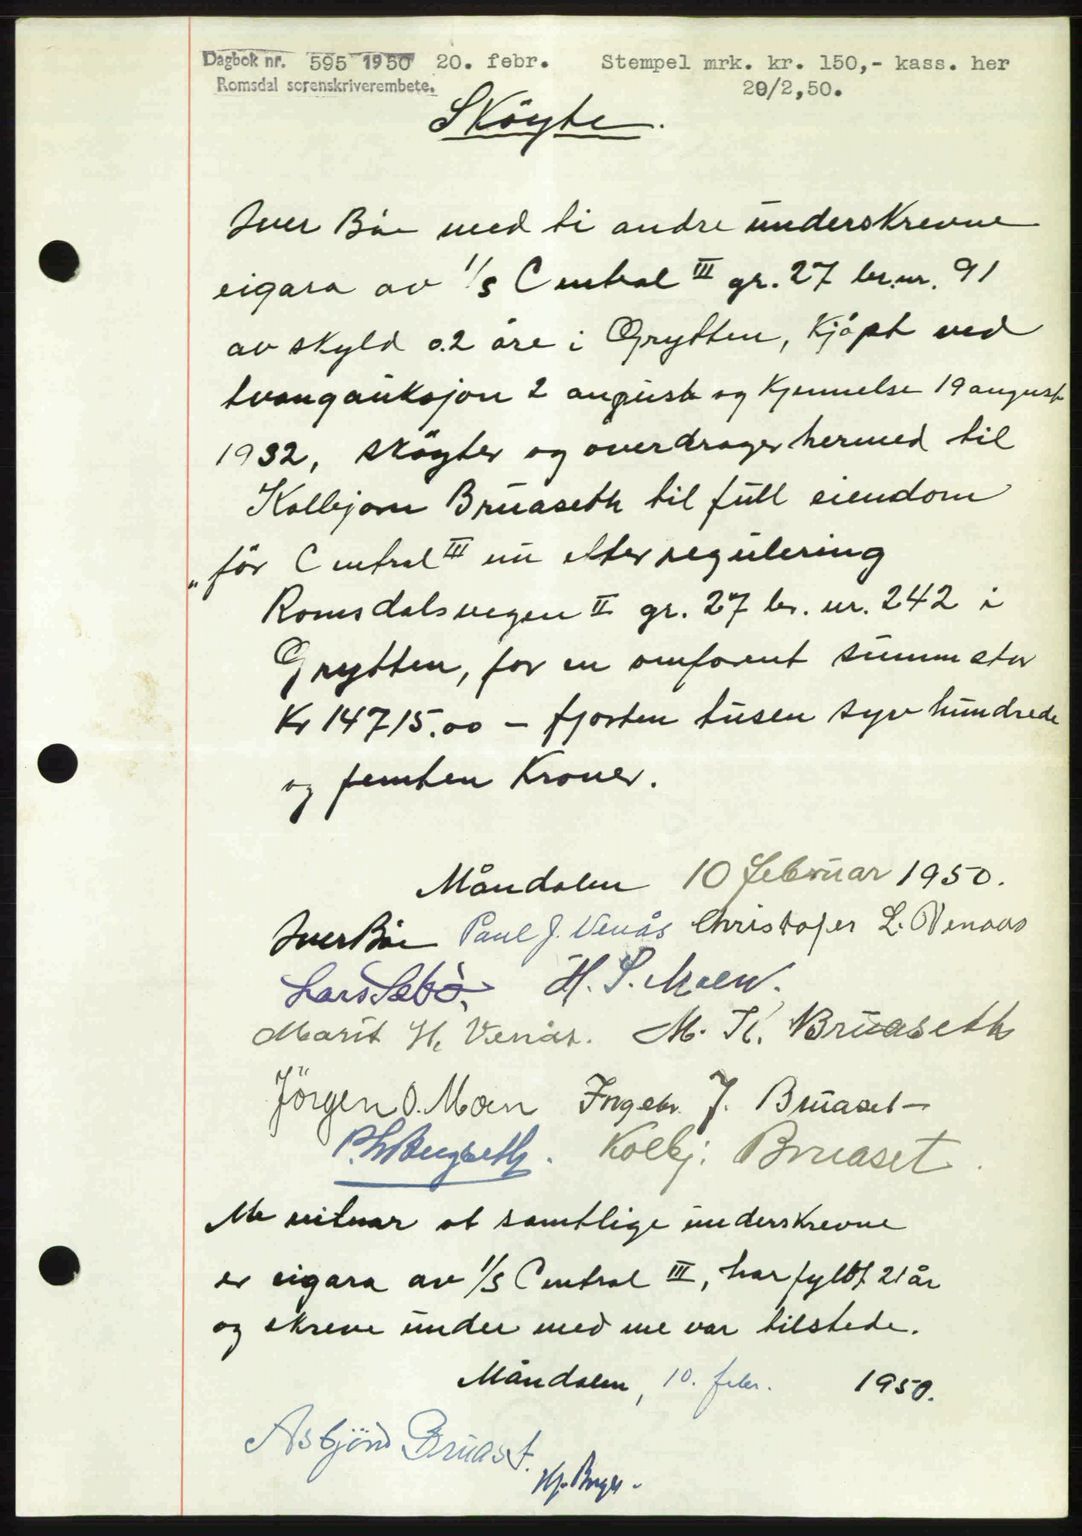 Dagbok nr. 595 1950 20. febr. Stempel mrk. kr. 150,- kass. her
Romsdal sorenskriverembete. 20/2,50.
Sköyte.
Iver Bøe med ti andre underskrevne
eigara av I/S Central III gr. 27 br.nr. 91
av skyld 0.2 øre i Grytten, Kjöpt ved
tvangauksjon 2 august og Kjennelse 19 august
1932, sköyter og overdrager hermed til
Kolbjørn Bruaseth til full eiendom
"för Central III nu etter regulering
Romsdalsvegen II gr. 27 br. nr. 242 i
Grytten, for en omforent summ stor
Kr 14715.00 – fjorten tusen syv hundrede
og femten Kroner.
Måndalen 10 februar 1950.
Iver Bøe Paul J. Venås Christofer L. Venaas
Lars Sæbø, H. S. Moen.
Marit H. Venås. M. K. Bruaseth
Jörgen O. Moen Ingebr. J. Bruaset –
Kolbj. Bruaset.
Me vitnar at samtlige underskrevne
er eigara av I/S Central III, har fyldt 21 år
og skreve under med me var tilstede.
Måndalen, 10. febr. 1950.
Asbjörn Bruaset.